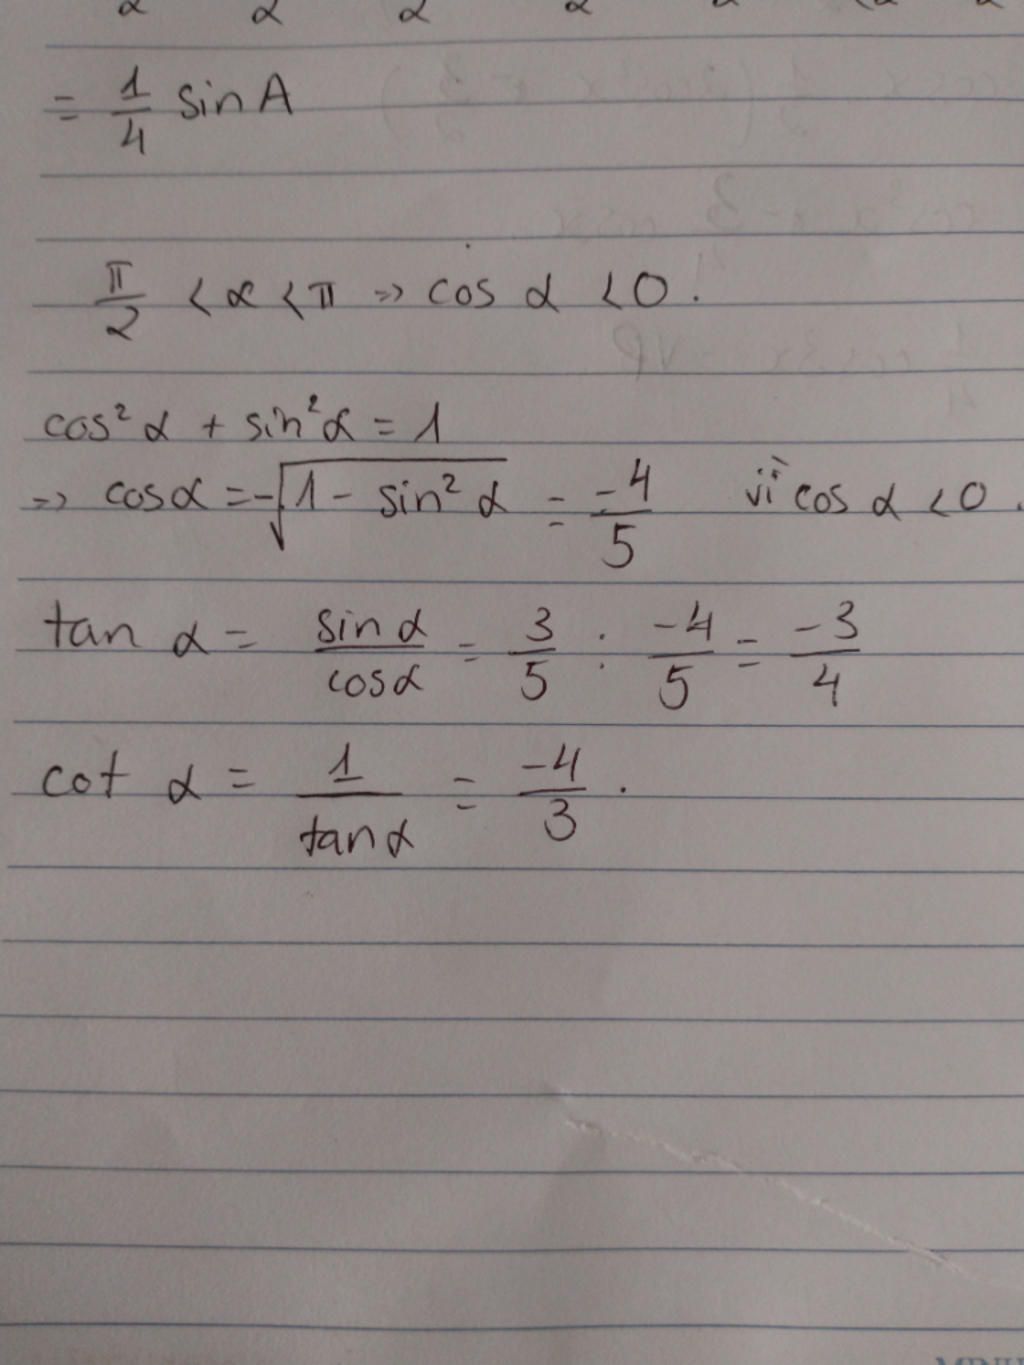 = 1/4 sin A
π/2 < α < π => cos α < 0.
cos² α + sin² α = 1
=> cos α = -√(1 - sin² α) = -4/5 vì cos α < 0.
tan α = sin α/cos α = 3/5 : -4/5 = -3/4
cot α = 1/tan α = -4/3.